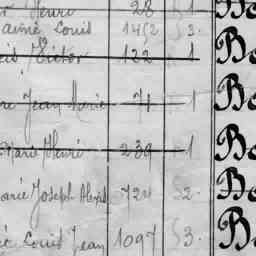 Henri 28 1
aimé Louis 1452 3. Bo
Victor 122 1 Bo
Jean Marie 71 1 Bo
Marie Henri 239 1 Bo
Marie Joseph Alexis 724 2. Bo
Louis Jean 1097 3. Bo